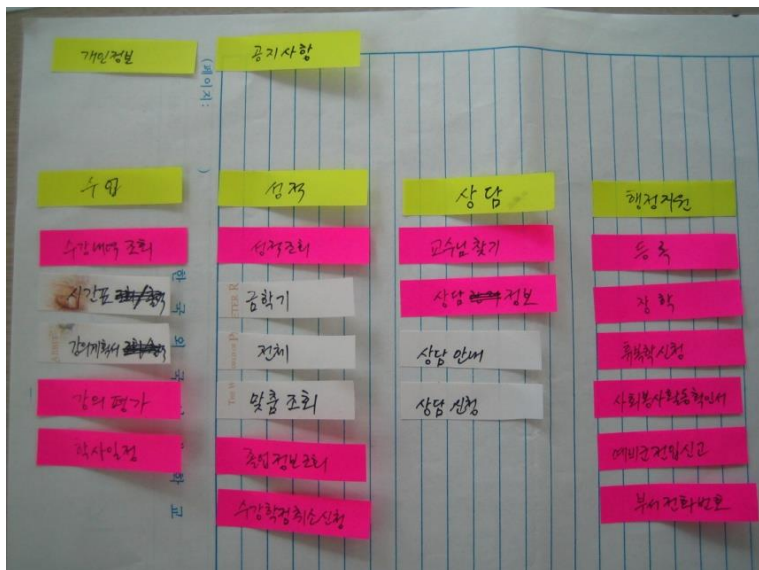 개인정보
공지사항
(페이지: )
수업
수강내역 조회
시간표
강의계획서
강의평가
학사일정
성적
성적조회
금학기
전체
맞춤 조회
졸업정보조회
수강학점취소신청
상담
교수님 찾기
상담 정보
상담 안내
상담 신청
행정지원
등록
장학
휴복학신청
사회봉사활동확인서
예비군전입신고
부서전화번호
한국외국
학교